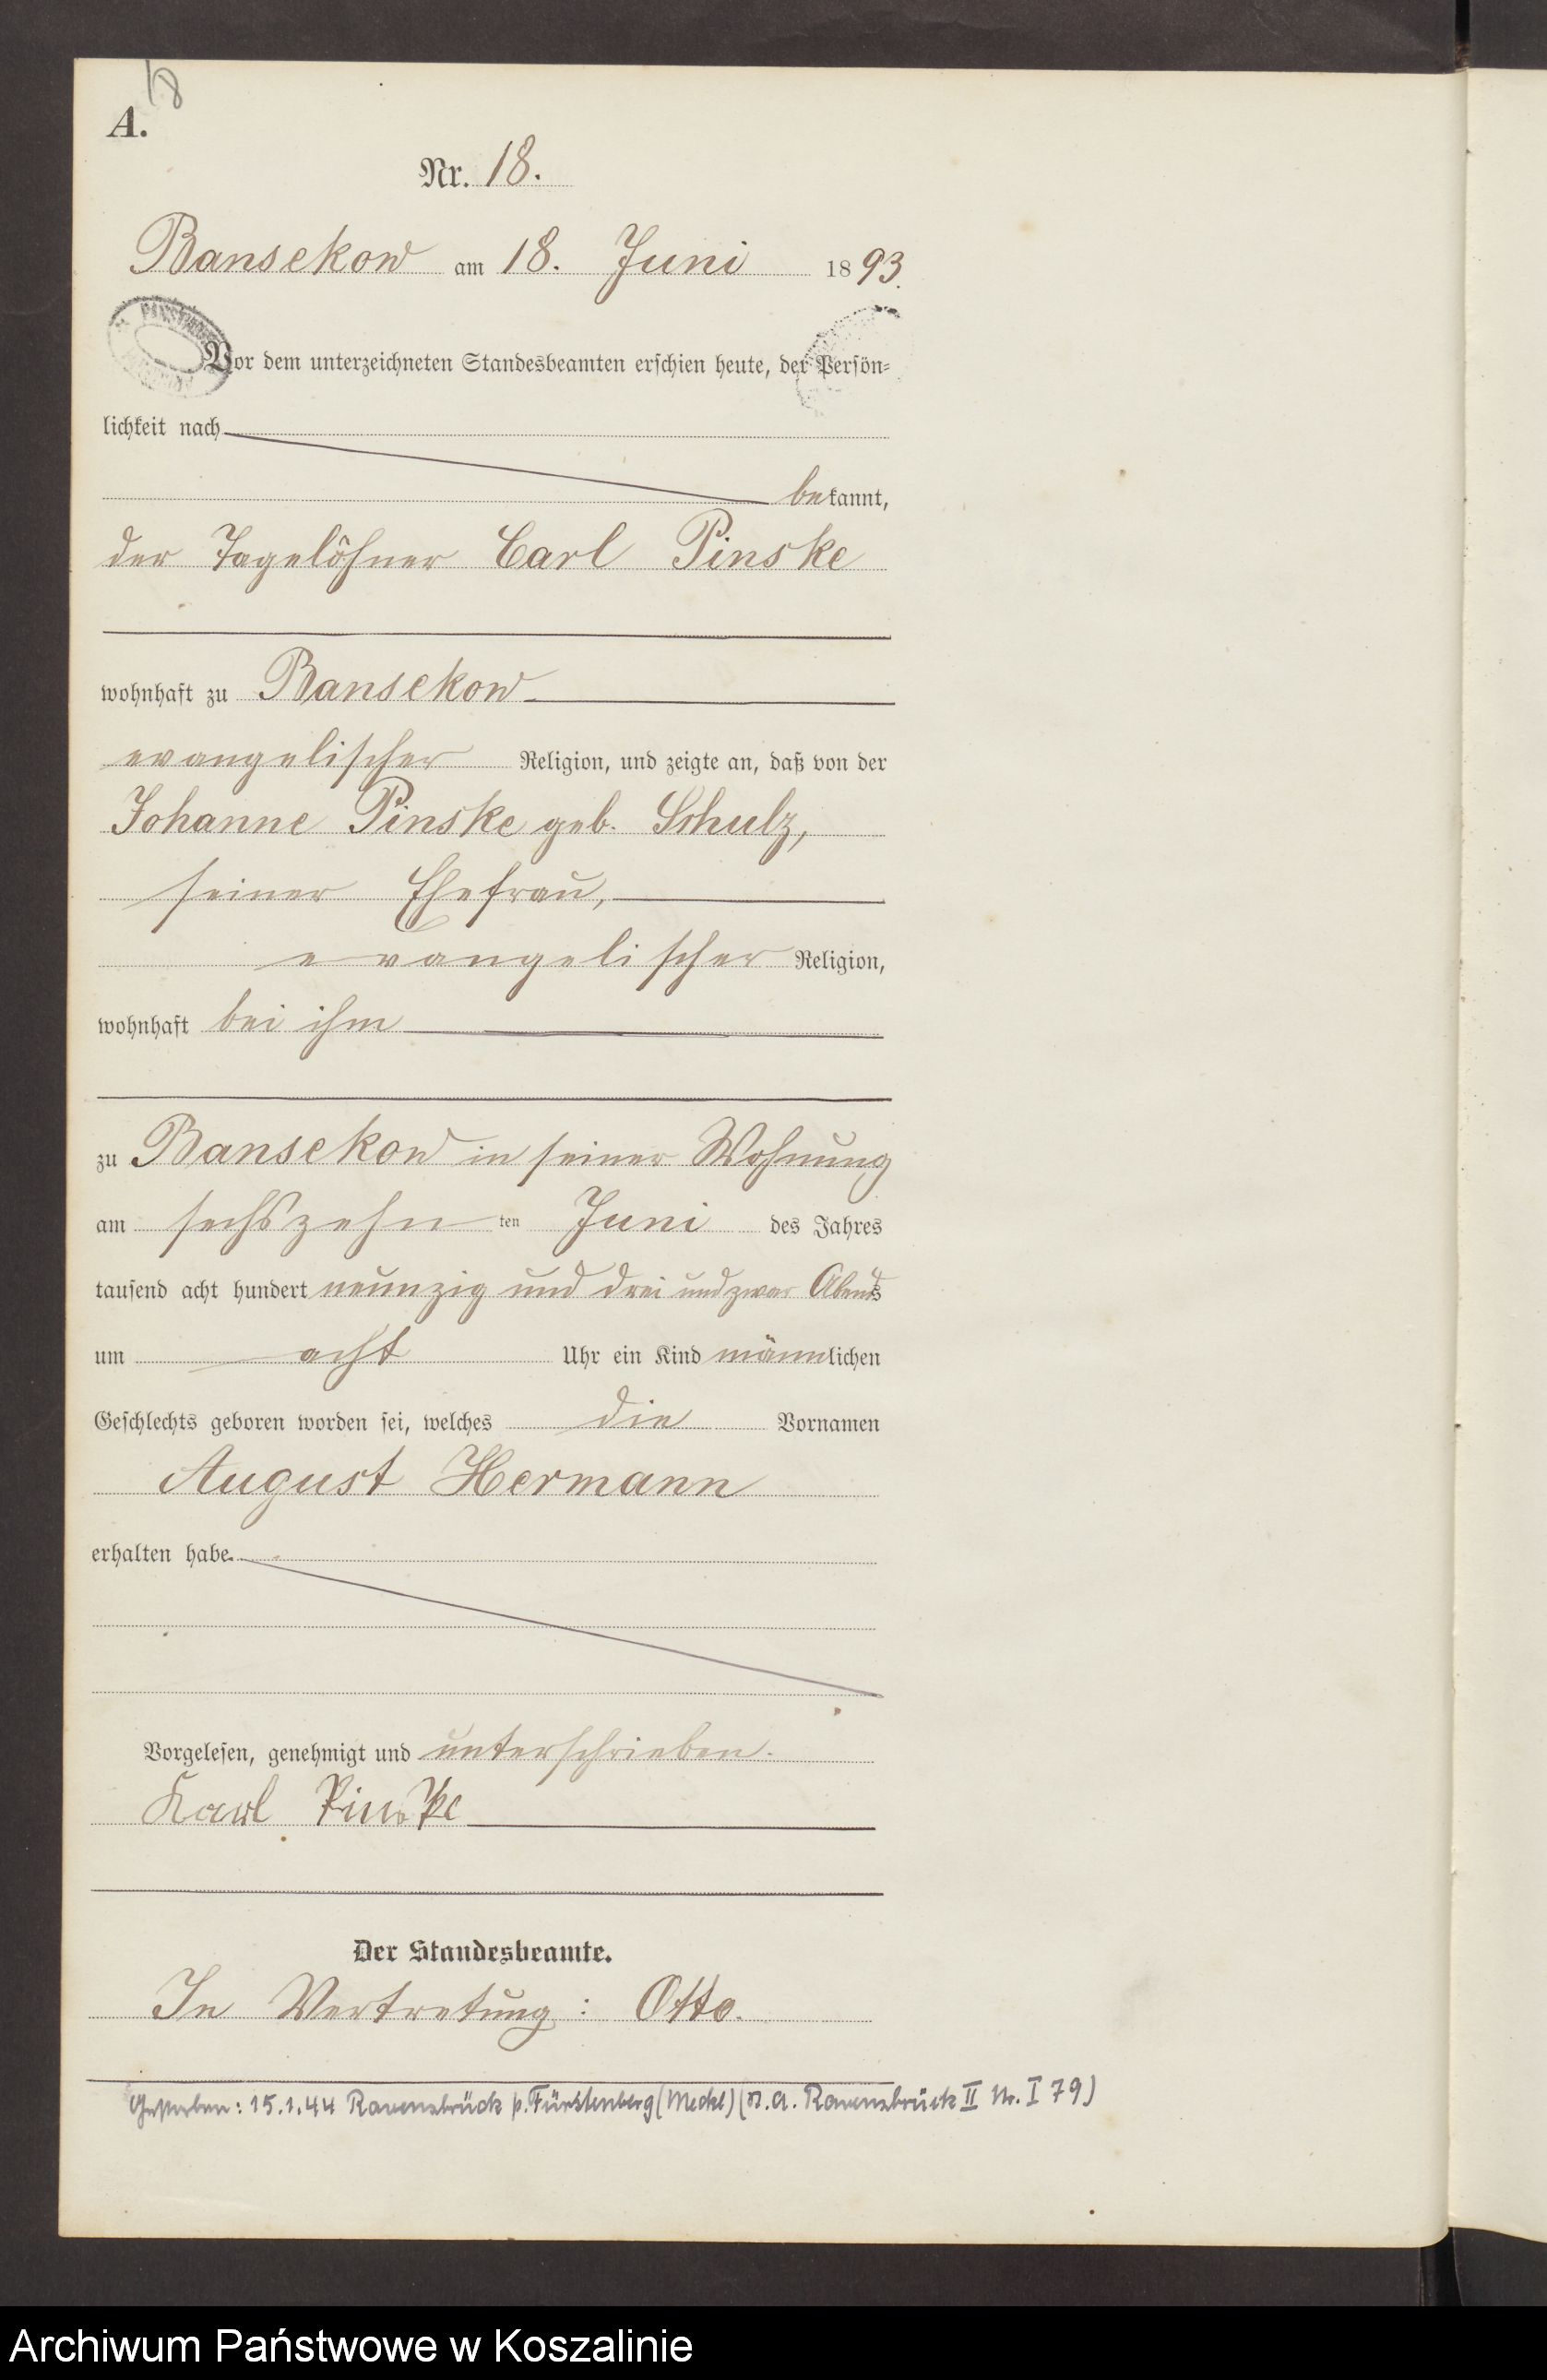 18
A.
Nr. 18.
Bansekow am 18. Juni 1893.
Vor dem unterzeichneten Standesbeamten erschien heute, der Persön-
lichkeit nach
bekannt,
der Tagelöhner Carl Pinske
wohnhaft zu Bansekow
evangelischer Religion, und zeigte an, daß von der
Johanne Pinske geb. Schulz,
seiner Ehefrau,
evangelischer Religion,
wohnhaft bei ihm
zu Bansekow in seiner Wohnung
am sechszehn ten Juni des Jahres
tausend acht hundert neunzig und drei und zwar Abends
um acht Uhr ein Kind männlichen
Geschlechts geboren worden sei, welches die Vornamen
August Hermann
erhalten habe.
Vorgelesen, genehmigt und unterschrieben.
Karl Pinske
Der Standesbeamte.
In Vertretung: Otto.
Gestorben: 15.1.44 Ravensbrück b. Fürstenberg (Meckl) (St. A. Ravensbrück II Nr. I 79)
Archiwum Państwowe w Koszalinie